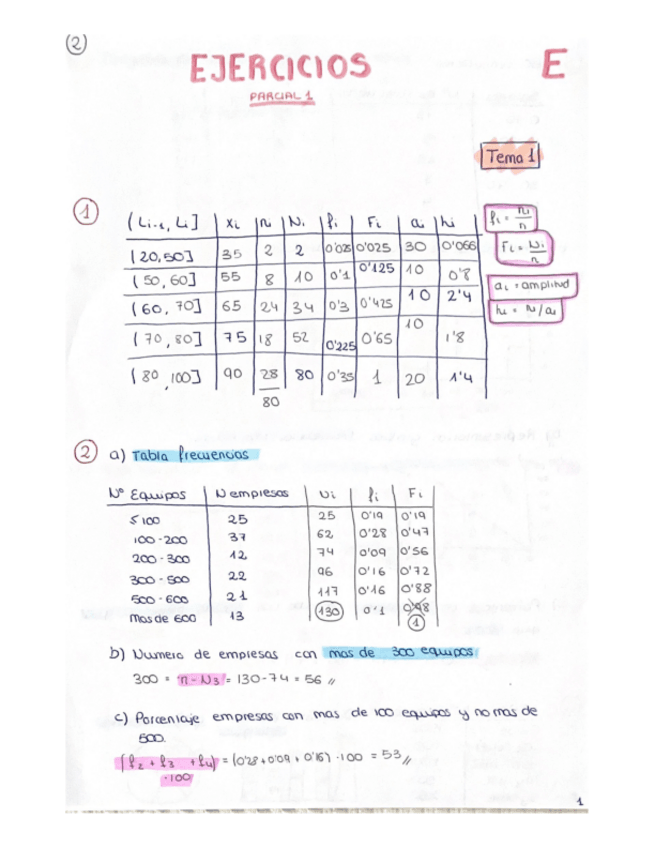 (2)
EJERCICIOS E
PARCIAL 1
Tema 1
1
(Li-1, Li] xi ni Ni fi Fi ai hi
[20,50] 35 2 2 0'025 0'025 30 0'066
(50,60] 55 8 10 0'1 0'125 10 0'8
(60,70] 65 24 34 0'3 0'425 10 2'4
(70,80] 75 18 52 0'225 0'65 10 1'8
(80,100] 90 28 80 0'35 1 20 1'4
80
fi = ni/n
Fi = Ni/n
ai = amplitud
hi = ni/ai
2 a) Tabla frecuencias
Nº Equipos N empresas Ni fi Fi
≤100 25 25 0'19 0'19
100-200 37 62 0'28 0'47
200-300 12 74 0'09 0'56
300-500 22 96 0'16 0'72
500-600 21 117 0'16 0'88
mas de 600 13 130 0'1 0'98
1
b) Numero de empresas con mas de 300 equipos
300 = n-N3 = 130-74 = 56 //
c) Porcentaje empresas con mas de 100 equipos y no mas de
500.
(f2 + f3 + f4) = (0'28+0'09+0'16) ·100 = 53 //
·100
1